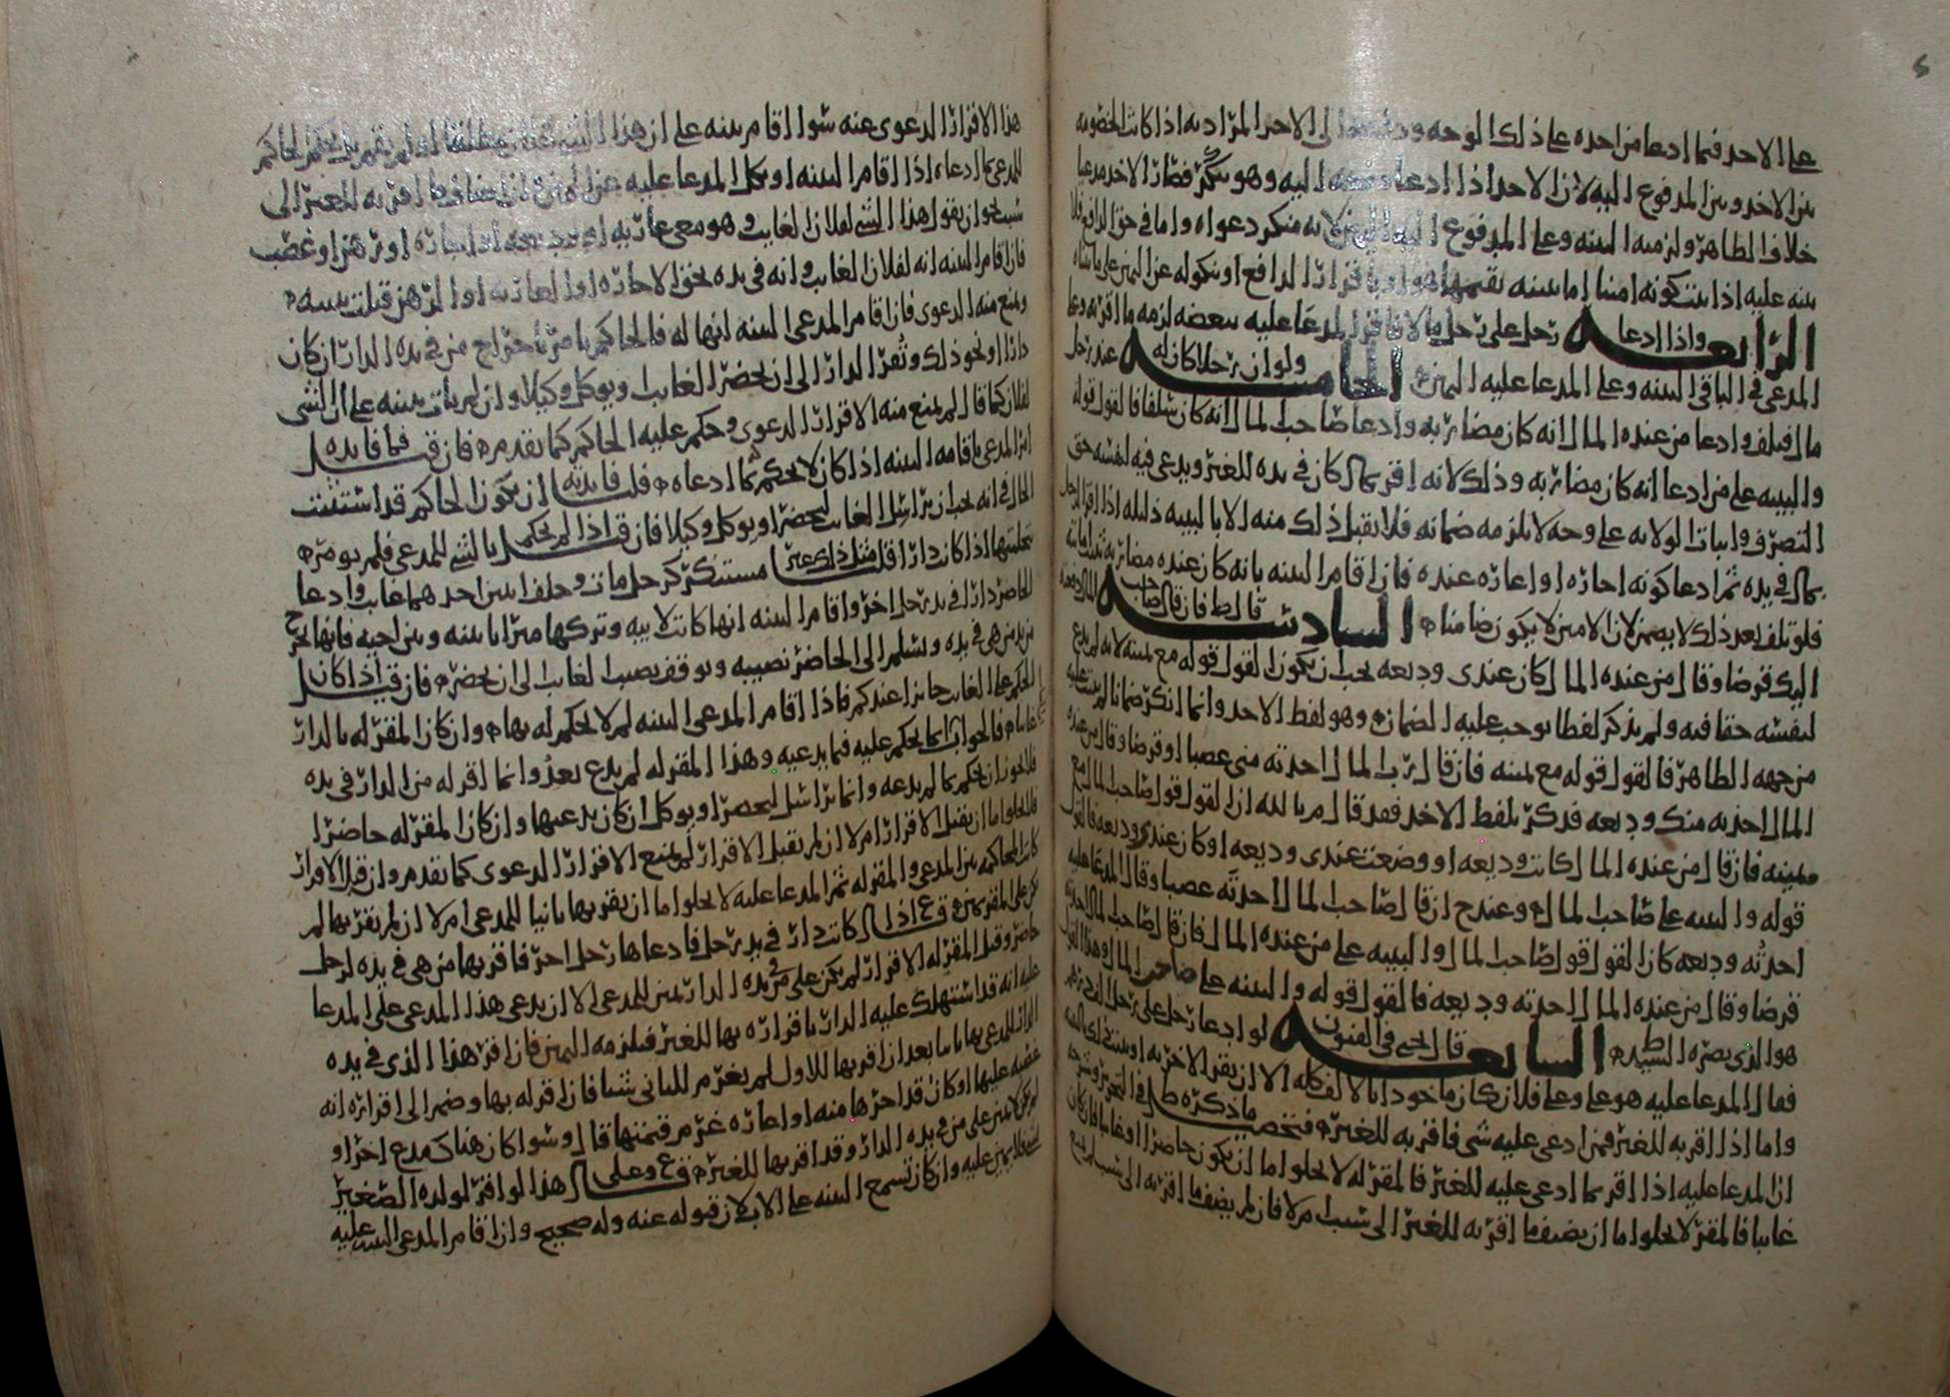 على الاحد فيما ادعا من احده على ذلك الوجه الى الاحد المراد به اذا كانت الخصومه
بين الاخد وبين المدفوع اليه لان الاحد اذا ادعا اليه وهو منكر فصار الاخد مدعيا
خلاف الظاهر ولزمه البينه وعلى المدفوع اليه اليمين لانه منكر دعواه واما في حق
بينه عليه اذا ثبت كونه امينا اما ببينه يقيمها هو او باقرار الدافع او نكوله عن اليمين على
الرابعه واذا ادعا رجل على رجل مالا فاقر المدعا عليه ببعضه لزمه ما اقر به وعلى
المدعي في الباقي البينه وعلى المدعا عليه اليمين الخامسه ولو ان رجلا كان له عند رجل
مال فتلف وادعا من عنده المال انه كان مضاربه وادعا صاحب المال انه كان سلفا فالقول قوله
والبينه على من ادعا انه كان مضاربه وذلك لانه اقر بمال كان في يده للغير ويدعي فيه لنفسه حق
التصرف واثبات الولايه على وجه لا يلزمه ضمانه فلا يقبل ذلك منه الا بالبينه دليله اذا اقر
بمال في يده ثم ادعا كونه اجاره او اعاره عنده فان اقام البينه بانه كان عنده مضاربه
فلو تلف بعد ذلك لا يضمن لان الامين لا يكون ضامنا السادسه قال ط فان قال صاحب المال
اليك قرضا وقال من عنده المال كان عندي وديعه يجب ان يكون القول قوله مع يمينه لانه لم يدع
لنفسه حقا فيه ولم يذكر لفظا يوجب عليه الضمان وهو لفظ الاحد وانما انكر ضمانا لم يثبت عليه
من جهه الظاهر فالقول قوله مع يمينه فان قال رب المال احدته مني غصبا او قرضا وقال من عنده
المال احذته منك وديعه فذكر بلفظ الاخد فقد قال م بالله ان القول قول صاحب المال مع
يمينه فان قال من عنده المال كانت وديعه او وضعت عندي وديعه او كان عندي وديعه فالقول
قوله والبينه على صاحب المال وعند ح ان قال صاحب المال احدته غصبا وقال المدعا عليه
احدته وديعه كان القول قول صاحب المال والبينه على من عنده المال فان قال صاحب المال
قرضا وقال من عنده المال احدته وديعه فالقول قوله والبينه على صاحب المال وهذا القول
هو الذي نصره السيد ط السابعه قال الحي في الفنون لو ادعا رجل على رجل الف درهم
فقال المدعا عليه هو علي وعلى فلان كان ماخودا بالالف كله الا ان يقر الاخر به او
واما اذا اقر به للغير فمن ادعى عليه شي فاقر به للغير فتخصيص ما ذكره ط في التحرير
ان المدعا عليه اذا اقر بما ادعى عليه للغير فالمقر له لا يخلوا اما ان يكون حاضرا او غايبا فان كان
غايبا فالمقر لا يخلوا اما ان يضيف ما اقر به للغير الى سبب ام لا فان لم يضف ما اقر به الى سبب لم يمنع
هذا الاقرار الدعوى عنه سوا اقام بينه على ان هذا او لم يقم بل يحكم الحاكم
للمدعي بما ادعاه اذا اقام البينه او نكل المدعا عليه عن اليمين وان اضاف ما اقر به للغير الى
سبب نحو ان يقول هذا الشي لفلان الغايب وهو معي عاريه او وديعه او اجاره او رهن او غصب
فان اقام البينه انه لفلان الغايب وانه في يده بحق الاجاره او العاريه او الرهن قبلت بينته
ومنع منه الدعوى فان اقام المدعي البينه انها له فالحاكم يامر باخراج من في يده الدار ان كان
دارا او نحو ذلك وتقر الدار الى ان يحضر الغايب او يوكل وكيلا وان لم يات ببينه على ان الشي
لفلان كما قال لم يمنع منه الاقرار الدعوى وحكم عليه الحاكم كما تقدم فان قيل فما فايده
امر المدعي باقامه البينه اذا كان لا يحكم بما ادعاه قلنا فايدته ان يكون الحاكم قد استثبت
الحال في انه يجب ان يراسل الغايب ليحضر او يوكل وكيلا فان قيل اذا لم يحكم بالشي للمدعي فلم يومر
بتخليتها اذا كانت دارا قلنا مثل ذلك غير مستنكر كرجل مات وخلف ابنين احدهما غايب وادعا
الحاضر دارا في يد رجل اخر واقام البينه انها كانت لابيه وتركها ميراثا بينه وبين اخيه فانها تخرج
من يد من هي في يده ويسلم الى الحاضر نصيبه ويوقف نصيب الغايب الى ان يحضر فان قيل اذا كان
الحكم على الغايب جايزا عندكم فاذا اقام المدعي البينه لم لا يحكم له بها وان كان المقر له بالدار
غايبا فالجواب انما يحكم عليه فيما يدعيه وهذا المقر له لم يدع بعد وانما اقر له من الدار في يده
فلا يجوز ان يحكم بما لم يدعه وانما يراسل ليحضر او يوكل ان كان يدعيها وان كان المقر له حاضرا
فلا يخلوا اما ان يقبل الاقرار ام لا ان لم يقبل الاقرار لم يمنع الاقرار الدعوى كما تقدم وان قبل الاقرار
كانت المحاكمه بين المدعي والمقر له ثم المدعا عليه لا يخلوا اما ان يقر بها ثانيا للمدعي ام لا ان لم يقر بها لم
يكن على المقر يمين فرع اذا كانت دار في يد رجل فادعاها رجل اخر فاقر بها من هي في يده لرجل
حاضر وقبل المقر له الاقرار لم يكن على من في يده الدار يمين للمدعي الا ان يدعي هذا المدعي على المدعا
عليه انه قد استهلك عليه الدار باقراره بها للغير فيلزمه اليمين فان اقر هذا الذي في يده
الدار للمدعي بها ثانيا بعد ان اقر بها للاول لم يغرم للثاني شيئا فان اقر له بها وضم الى اقراره انه
غصبه عليها او كان قد اجرها منه او اعاره غرم قيمتها قال وسوا كان هناك مدع اخر او
لم يكن لا يمين على من في يده الدار وقد اقر بها للغير فرع وعلى هذا لو اقر لولده الصغير
بشي فلا يمين عليه وان كان تسمع البينه على الاب لان قوله عنه وله صحيح وان اقام المدعي البينه عليه